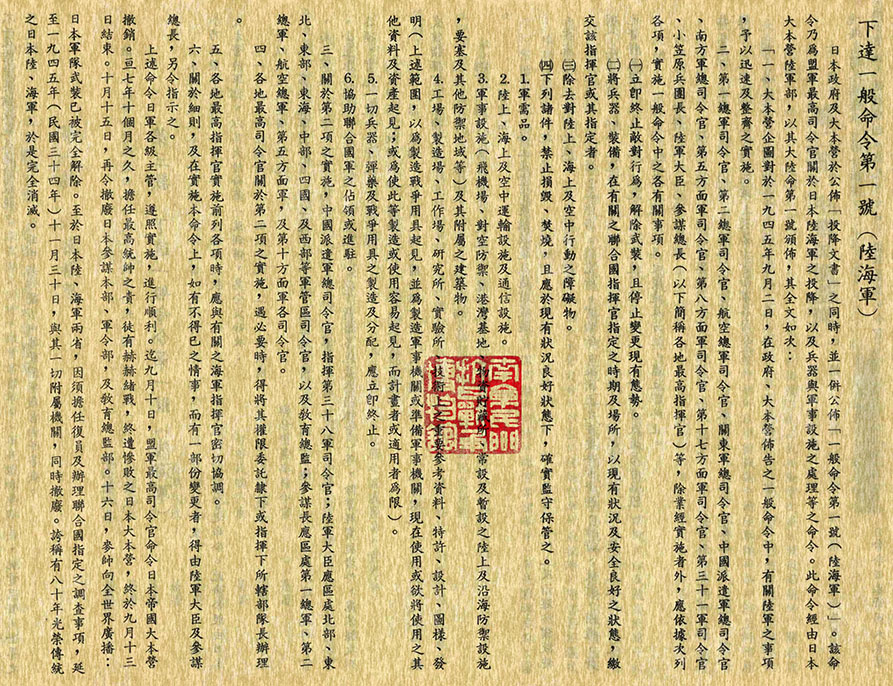 下達一般命令第一號（陸海軍）
日本政府及大本營於公佈「投降文書」之同時，並一併公佈「一般命令第一號（陸海軍）」。該命
令乃為盟軍最高司令官關於日本陸海軍之投降，以及兵器與軍事設施之處理等之命令。此命令經由日本
大本營陸軍部，以其大陸命第一號頒佈，其全文如次：
「一、大本營企圖對於一九四五年九月二日，在政府、大本營佈告之一般命令中，有關陸軍之事項
，予以迅速及整齊之實施。
二、第一總軍司令官、第二總軍司令官、航空總軍司令官、關東軍總司令官、中國派遣軍總司令官
、南方軍總司令官、第五方面軍司令官、第八方面軍司令官、第十七方面軍司令官、第三十一軍司令官
、小笠原兵團長、陸軍大臣、參謀總長（以下簡稱各地最高指揮官）等，除業經實施者外，應依據次列
各項，實施一般命令中之各有關事項。
㈠立即終止敵對行為，解除武裝，且停止變更現有態勢。
㈡將兵器、裝備，在有關之聯合國指揮官指定之時期及場所，以現有狀況及安全良好之狀態，繳
交該指揮官或其指定者。
㈢除去對陸上、海上及空中行動之障礙物。
㈣下列諸件，禁止損毀、焚燒，且應於現有狀況良好狀態下，確實監守保管之。
1.軍需品。
2.陸上、海上及空中運輸設施及通信設施。
3.軍事設施（飛機場、對空防禦、港灣基地、物資貯藏所、常設及暫設之陸上及沿海防禦設施
，要塞及其他防禦地域等）及其附屬之建築物。
4.工場、製造場、工作場、研究所、實驗所、技術上之重要參考資料、特許、設計、圖樣、發
明（上述範圍，以為製造戰爭用具起見，並為製造軍事機關或準備軍事機關，現在使用或欲將使用之其
他資料及資產起見；或為使此等製造或使用容易起見，而計畫者或適用者為限）。
5.一切兵器、彈藥及戰爭用具之製造及分配，應立即終止。
6.協助聯合國軍之佔領或進駐。
三、關於第二項之實施，中國派遣軍總司令官，指揮第三十八軍司令官；陸軍大臣應區處北部、東
北、東部、東海、中部、四國、及西部等軍管區司令官，以及教育總監；參謀長應區處第一總軍、第二
總軍、航空總軍、第五方面軍，及第十方面軍各司令官。
四、各地最高司令官關於第二項之實施，遇必要時，得將其權限委託隸下或指揮下所轄部隊長辦理
。
五、各地最高指揮官實施前列各項時，應與有關之海軍指揮官密切協調。
六、關於細則，及在實施本命令上，如有不得已之情事，而有一部份變更者，得由陸軍大臣及參謀
總長，另令指示之。
上述命令日軍各級主管，遵照實施，進行順利。迄九月十日，盟軍最高司令官命令日本帝國大本營
撤銷。亘七年十個月之久，擔任最高統帥之責，徒有赫赫緒戰，終遭慘敗之日本大本營，終於九月十三
日結束。十月十五日，再令撤廢日本參謀本部、軍令部，及教育總監部。十六日，麥帥向全世界廣播：
日本軍隊武裝已被完全解除。至於日本陸、海軍兩省，因須擔任復員及辦理聯合國指定之調查事項，延
至一九四五年（民國三十四年）十一月三十日，與其一切附屬機關，同時撤廢。誇稱有八十年光榮傳統
之日本陸、海軍，於是完全消滅。